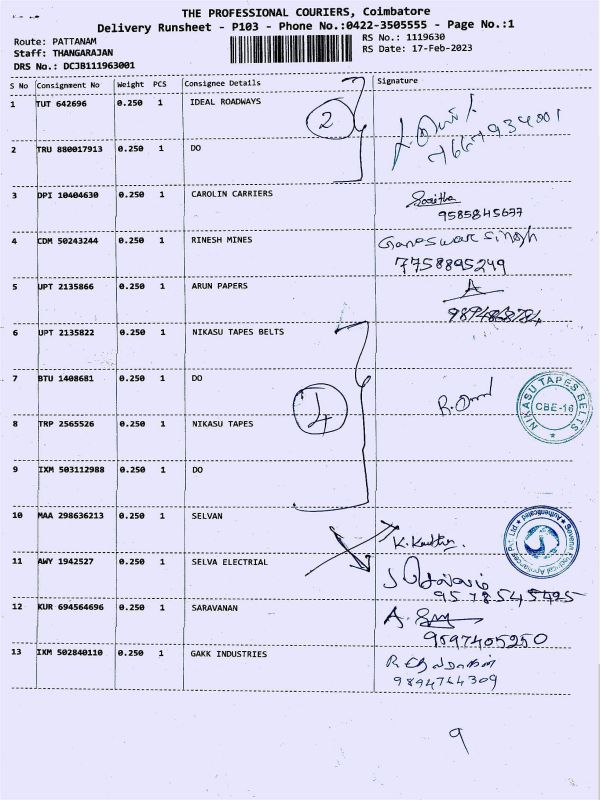 THE PROFESSIONAL COURIERS, Coimbatore
Delivery Runsheet - P103 - Phone No.:0422-3505555 - Page No.:1
Route: PATTANAM
Staff: THANGARAJAN
DRS No.: DCJB111963001
RS No.: 1119630
RS Date: 17-Feb-2023
S No Consignment No Weight PCS Consignee Details Signature
1 TUT 642696 0.250 1 IDEAL ROADWAYS
2
2 TRU 880017913 0.250 1 DO
3 DPI 10404630 0.250 1 CAROLIN CARRIERS
9585845637
4 CDM 50243244 0.250 1 RINESH MINES Ganeswar Singh
7758895249
5 UPT 2135866 0.250 1 ARUN PAPERS A
6 UPT 2135822 0.250 1 NIKASU TAPES BELTS
7 BTU 1408681 0.250 1 DO
4
NIKASU TAPES BELTS
CBE-16
8 TRP 2565526 0.250 1 NIKASU TAPES
9 IXM 503112988 0.250 1 DO
10 MAA 298636213 0.250 1 SELVAN
11 AWY 1942527 0.250 1 SELVA ELECTRIAL
12 KUR 694564696 0.250 1 SARAVANAN
9597405250
13 IXM 502840110 0.250 1 GAKK INDUSTRIES
9894764309
9